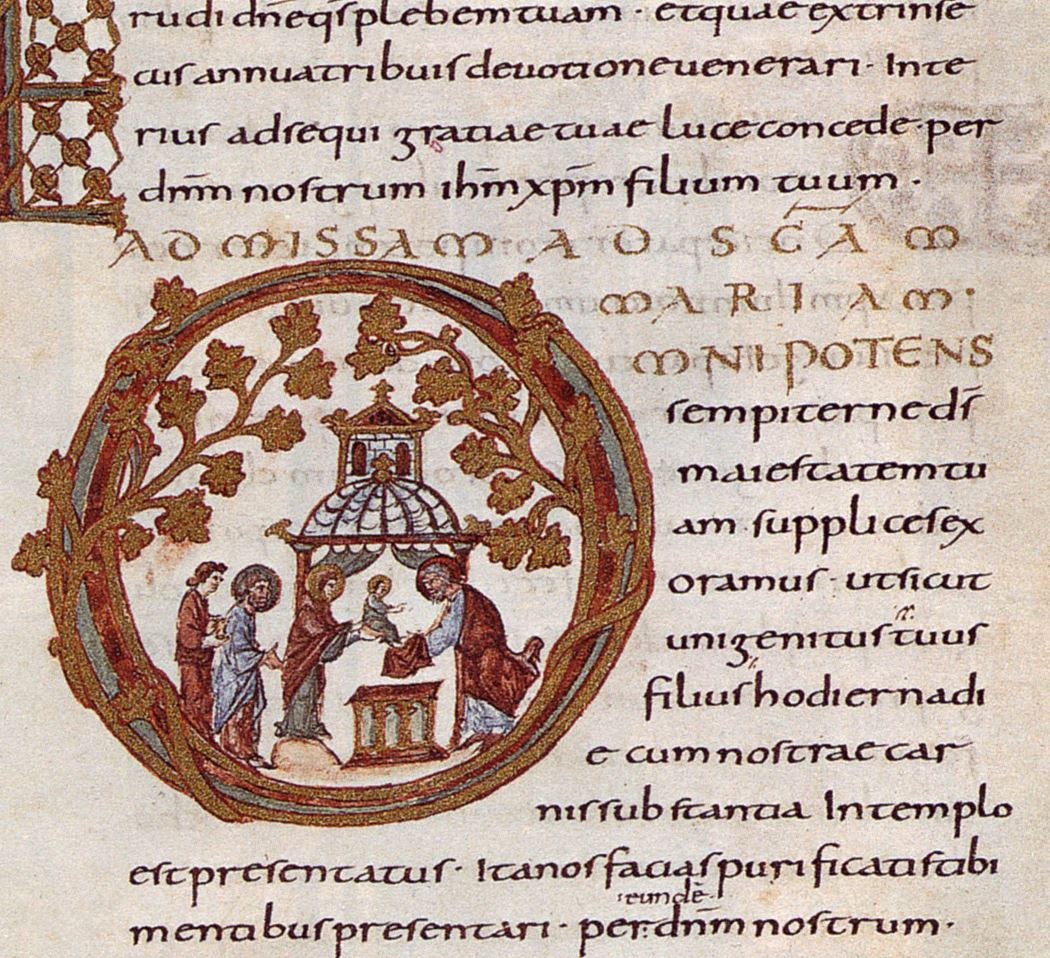 rudi dn̄e q̄s plebem tuam · et quae extrinse
cus annua tribuis devotione venerari · Inte
rius adsequi gratiae tuae luce concede · per
dn̄m nostrum ih̄m xp̄m filium tuum ·
AD MISSAM AD SC̄AM
MARIAM·
OMNIPOTENS
sempiterne ds̄
maiestatem tu
am supplices ex
oramus · ut sicut
unigenitus tuus
filius hodierna di
e cum nostrae car
nis substantia In templo
est presentatus · Ita nos facias purificatis tibi
eundē
mentibus presentari · per dn̄m nostrum ·